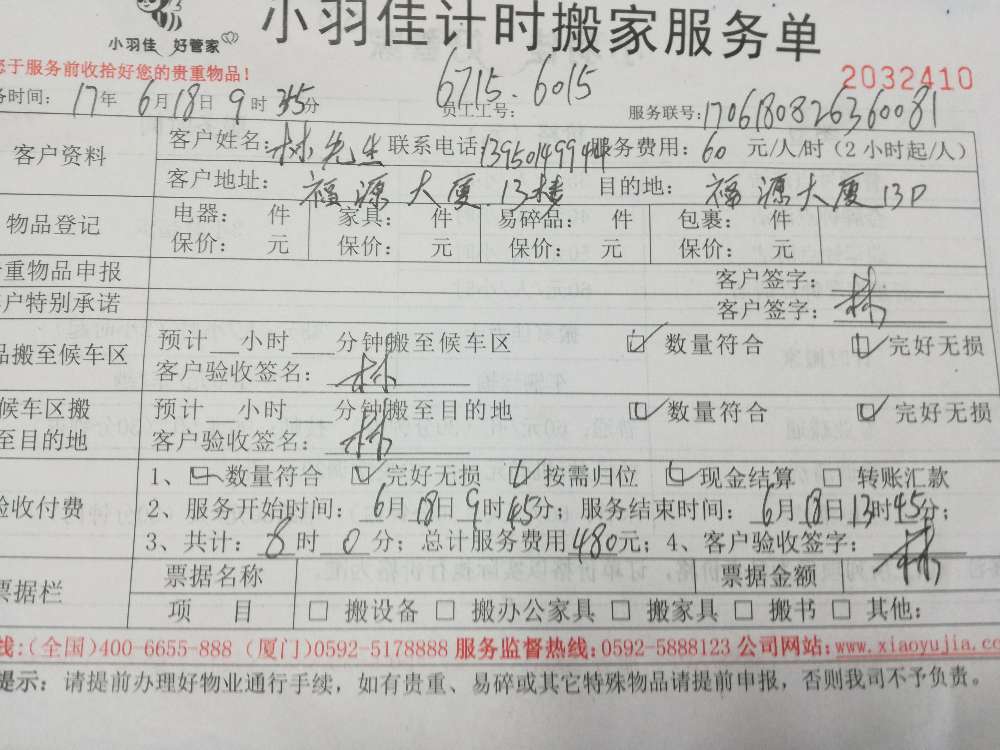 小羽佳 好管家
小羽佳计时搬家服务单
您于服务前收拾好您的贵重物品!
2032410
务时间: 17年 6月18日 9时 35分 员工工号: 6715.6015 服务联号: 1706180826360081
客户资料 客户姓名: 林先生 联系电话: 13950149944 服务费用: 60 元/人/时 (2小时起/人)
客户地址: 福源大厦.13楼 目的地: 福源大厦13D
物品登记 电器: 件 家具: 件 易碎品: 件 包裹: 件
保价: 元 保价: 元 保价: 元 保价: 元
重物品申报 客户签字: 林
户特别承诺 客户签字:
品搬至候车区 预计__小时____分钟搬至候车区 ☑ 数量符合 ☑ 完好无损
客户验收签名: 林
候车区搬 预计 小时 分钟搬至目的地 ☑ 数量符合 ☑ 完好无损
至目的地 客户验收签名: 林
验收付费 1、☑ 数量符合 ☑ 完好无损 ☑ 按需归位 ☑ 现金结算 □ 转账汇款
2、服务开始时间: 6月18日9时45分; 服务结束时间: 6月18日13时45分;
3、共计: 8时 0分; 总计服务费用480元; 4、客户验收签字: 林
票据栏 票据名称 票据金额
项 目 □ 搬设备 □ 搬办公家具 □ 搬家具 □ 搬书 □ 其他:
线:(全国)400-6655-888 (厦门)0592-5178888 服务监督热线:0592-5888123 公司网站:www.xiaoyujia.co
提示: 请提前办理好物业通行手续，如有贵重、易碎或其它特殊物品请提前申报，否则我司不予负责。